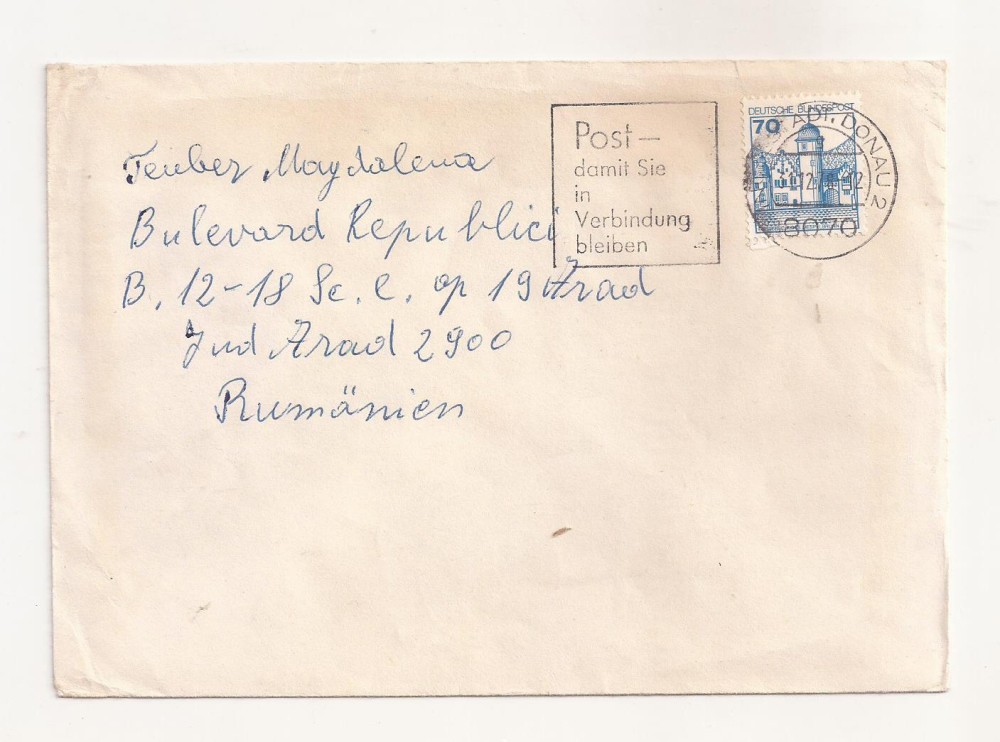 Teuber Magdalena
Bulevard Republici
B. 12-18 Sc. C. ap 19 Arad
Jud Arad 2900
Rumänien
Post –
damit Sie
in
Verbindung
bleiben
DEUTSCHE BUNDESPOST
70
ADT, DONAU 2
8070